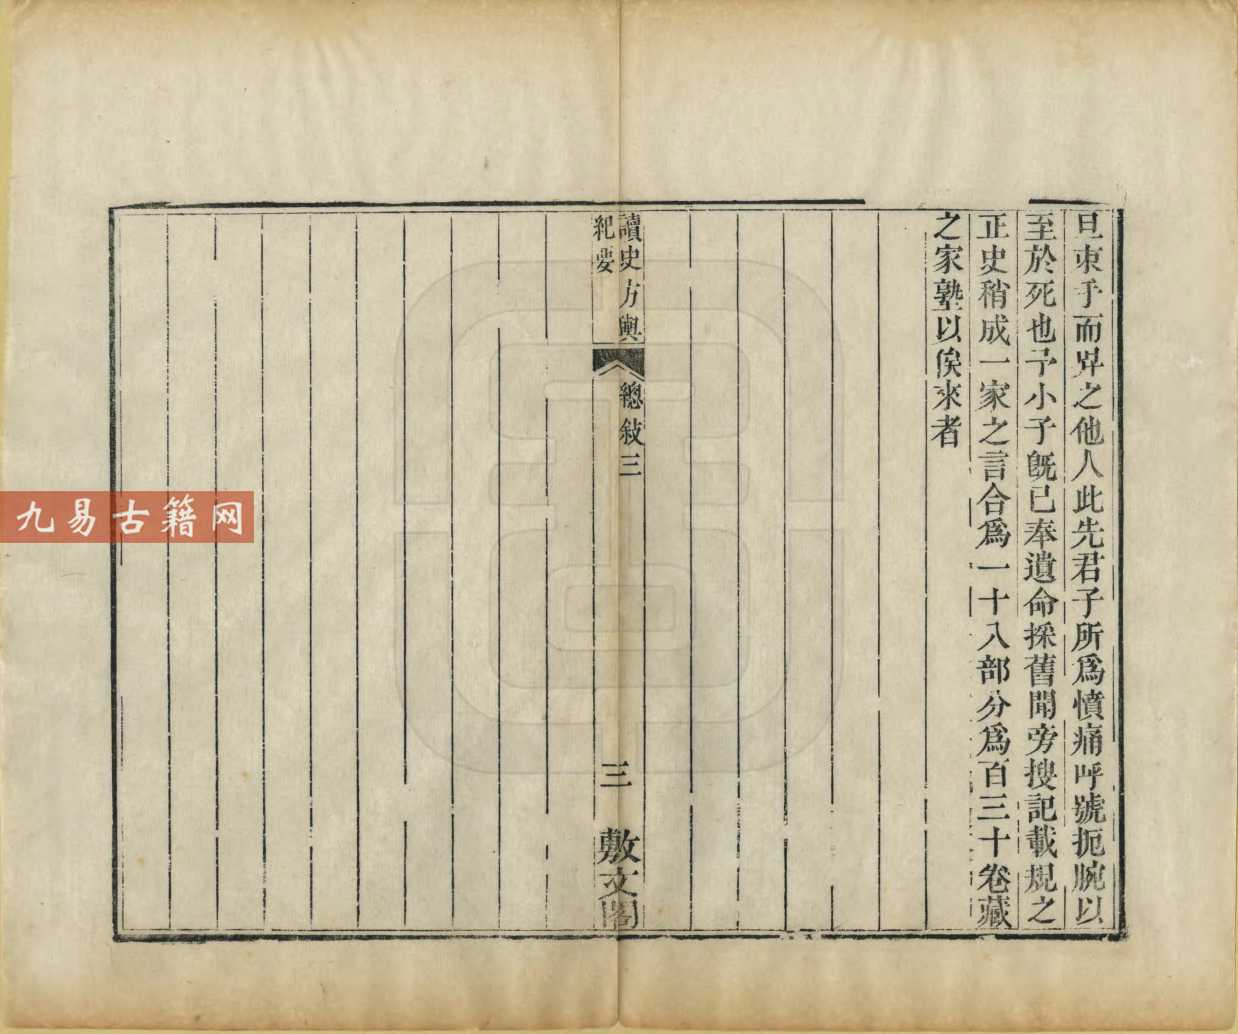 旦束手而畀之他人此先君子所爲憤痛呼號扼腕以
至於死也予小子旣已奉遺命採舊聞旁搜記載規之
正史稍成一家之言合爲一十八部分爲百三十卷藏
之家塾以俟來者
讀史方輿
紀要
總敍三
三
敷文閣
九易古籍网